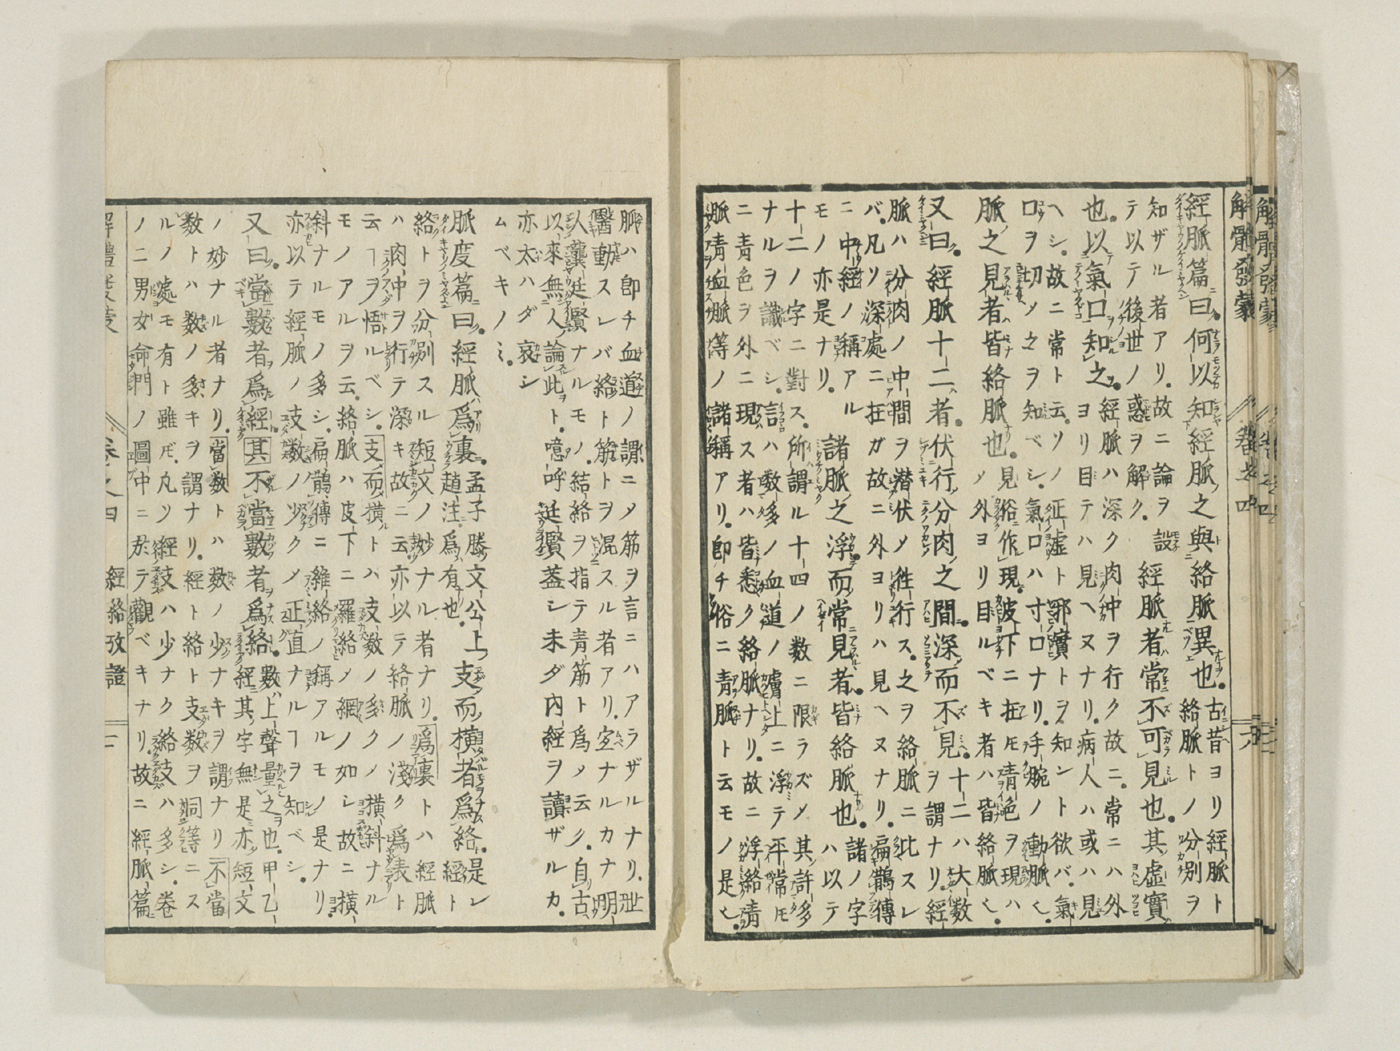 解體發蒙 卷之四 六
經脈篇曰。何以知經脈之與絡脈異也。古昔ヨリ經脈ト
絡脈トノ分別ヲ
知ザル者アリ。故ニ論ヲ設
テ以テ後世ノ惑ヲ解ク。
經脈者常不可見也。其虛實
也。以氣口知之。經脈ハ深ク肉中ヲ行ク故ニ。常ニハ外
ヨリ目テハ見ヘヌナリ。病人ハ或ハ見
ヘシ。故ニ常ト云ソ。正虛ト邪實トヲ知ント欲バ。氣
口ヲ切ソ之ヲ知ベシ。氣口ハ寸口ナリ。手腕ノ動脈
脈之見者。皆絡脈也。見俗作現。皮下ニ在
青色ヲ現ハ
外ヨリ目ルベキ者ハ皆絡脈
又曰。經脈十二者。伏行分肉之間。深而不見。十二ハ大數
ヲ謂ナリ。經
脈ハ分肉ノ中間ヲ潛伏
往行ス。之ヲ絡脈ニ比スレ
バ。凡ソ深處ニ在ガ故ニ外ヨリハ見ヘヌナリ。扁鵲傳
ニ中經ノ稱アル
モノ亦是ナリ。
諸脈之浮而常見者。皆絡脈也。諸ノ字
ハ以テ
十二ノ字ニ對ス。所謂ル十四ノ數ニ限ラズ
其許多
ナルヲ識ベシ。言ハ數多ノ血道ノ膚上ニ浮テ平常
ニ青色ヲ外ニ現ス者ハ皆悉ク絡脈ナリ。故ニ浮絡青
脈青血脈等ノ諸稱アリ。卽チ俗ニ青脈ト云モノ是
脈ハ卽チ血道ノ謂ニ
筋ヲ言ニハアラザルナリ。
醫動スレバ絡ト筋トヲ混スル者アリ。
ナルカナ明
人龔廷賢ナルモノ。結絡ヲ指テ青筋ト爲
云ク。自古
以來無人論此ト。噫呼廷賢蓋シ未ダ內經ヲ讀ザルカ。
亦太ハダ哀シ
ムベキノミ。
脈度篇曰。經脈爲裏。孟子滕文公上
趙注。爲有也。
支而橫者爲絡。是レ
經ト
絡トヲ分別スル短文ノ妙ナル者ナリ。爲裏トハ經脈
ハ肉中ヲ行テ深キ故ニ云。亦以テ絡脈ノ淺ク爲表ト
云ヿヲ悟ルベシ。支而橫トハ支數ノ多ク
橫斜ナル
モノアルヲ云。絡脈ハ皮下ニ羅絡
網ノ如シ故ニ橫
斜ナルモノ多シ。扁鵲傳ニ維絡ノ稱アルモノ是ナリ
亦以テ經脈ノ支數ノ少ク
正直ナルヿヲ知ベシ。
又曰。當數者爲經。其不當數者爲絡。數上聲量之也。甲乙
經其字無是。亦短文
ノ妙ナル者ナリ。當數トハ數ノ少ナキヲ謂ナリ不當
數トハ數ノ多キヲ謂ナリ。經ト絡ト支數ヲ同等ニス
ルノ處モ有ト雖
凡ソ經支ハ少ナク絡支ハ多シ。卷
ノ二男女命門ノ圖中ニ於テ觀ベキナリ。故ニ經脈篇
解體發蒙 卷之四 經絡攷證